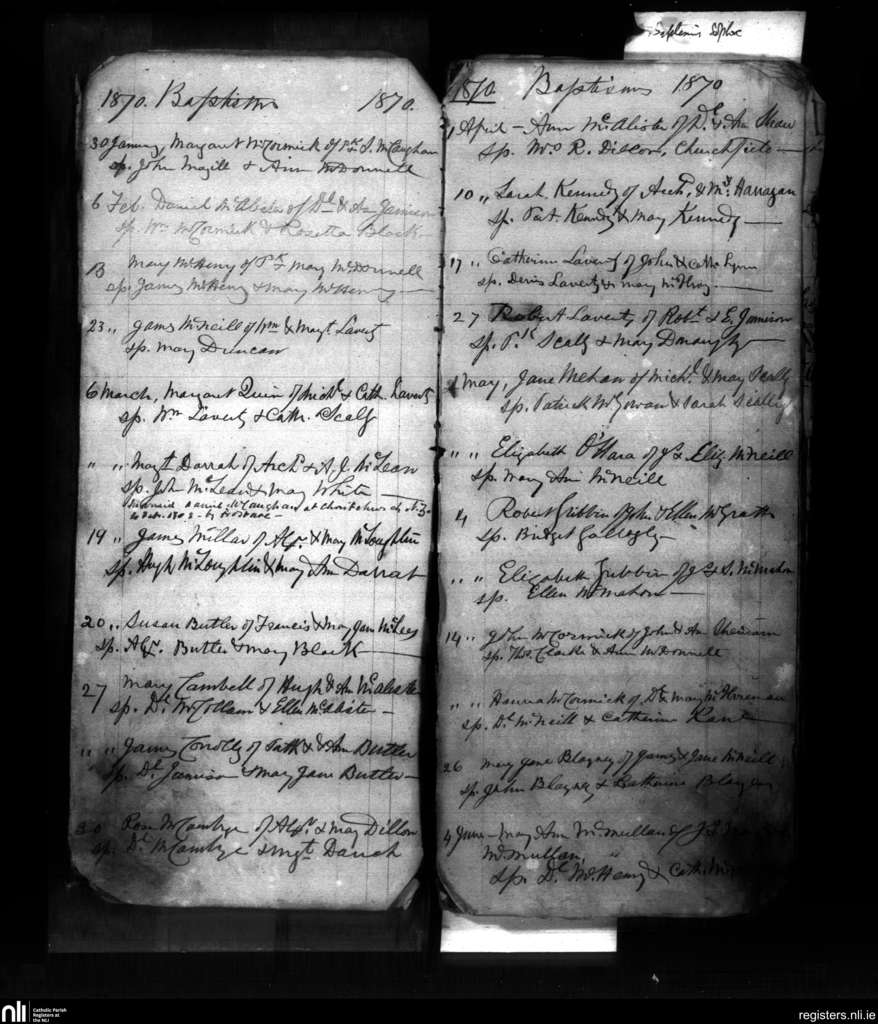 Baptisms
1870. Baptisms 1870.
30 January, Margaret McCormick of Pk & S. McCaughan
sp. John Magill & Ann McDonnell
6 Feb. Daniel McAlister of Dl & Ann Jamison
sp. Wm McCormick & Rosetta Black.
13 Mary McHenry of Pk & Mary McDonnell
sp. James McHenry & Mary McHenry
23 " James McNeill of Wm & Magt Laverty
sp. Mary Duncan
6 March, Margaret Quin of Michl & Cath. Laverty
sp. Wm Laverty & Cath. Scally
" " Magt Darrah of Archd & A. J. McLean
sp. John McLean & Mary White
Daniel McCaughan at
19 " James Millar of Alexr. & Mary McLoughlin
sp. Hugh McLoughlin & Mary Ann Darrah
20 " Susan Butler of Francis & Mary Jane McLees
sp. Alexr. Butler & Mary Black
27 Mary Cambell of Hugh & Ann McAlister
sp. Dl McCollam & Ellen McAlister
" " James Conolly of Patk & Ann Butler
sp. Dl Jamison & Mary Jane Butler
30 Rose McCambge of Alexr. & Mary Dillon
sp. Dl McCambge & Magt Darrah
1870 Baptisms 1870
1 April - Ann McAlister of Dl & Ann Shaw
sp. Mrs R. Churchfield
10 " Sarah Kennedy of Archd, & My. Hanagan
sp. Pat. Kennedy & Mary Kennedy
17 " Catherine Laverty of John & Cathe Lynn
sp. Denis Laverty & Mary McIlroy
27 Robert Laverty of Robt & E. Jamison
sp. Pk Scally & Mary Donaughy
1 May, Jane Mehan of Michl & Mary Scally
sp. Patrick McGowan & Sarah Scally
" " Elizabeth O'Hara of Js & Eliz. McNeill
sp. Mary Ann McNeill
4 Robert Gribbin of John & Ellen McGrath
sp. Bridget Gallogly
" " Elizabeth Gribbin of Js & S. McMahon
sp. Ellen McMahon
14 " John McCormick of John & Ann Sheridan
sp. Thos. Clarke & Ann McDonnell
" " Hanna McCormick of Dl & Mary
sp. Dl McNeill & Catherine Kane
26 Mary Jane Blaney of James & Jane McNeill
sp. John Blaney & Catherine Blaney
4 June - Mary Ann McMullan of
McMullan,
sp. Dl McHenry & Cath.
nli Catholic Parish Registers at the NLI
registers.nli.ie